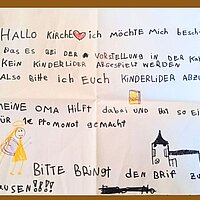 HALLO KIRCHE ich MÖCHTE MICH besch
DAS ES BEI DER VORSTELLUNG IN DER KA
KEIN KINDERLIDER ABGESPIELT WERDEN
ALSO Bitte ich EUCH KINDERLIDER ABZU
MEINE OMA HILFT dabei UND
FÜR 1€ PROMONAT gEMACHT
BITTE BRiNgT den BRIF zu